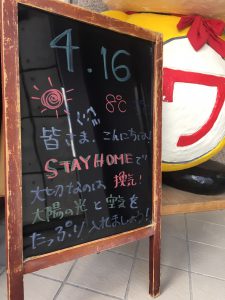 4.16
8℃
皆さま、こんにちは!
STAY HOMEで
大切なのは 換気!
太陽の光と空気を
たっぷり入れましょう!